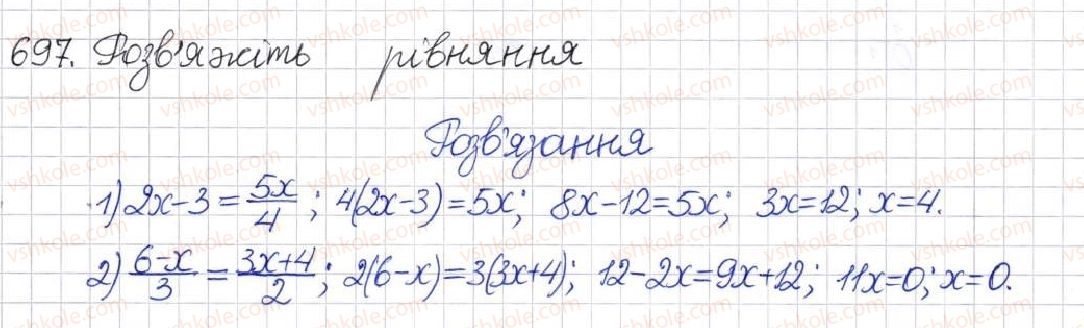 697. Розв'яжіть рівняння
Розв'язання
1) 2x-3 = 5x/4; 4(2x-3)=5x; 8x-12=5x; 3x=12; x=4.
2) (6-x)/3 = (3x+4)/2; 2(6-x)=3(3x+4); 12-2x=9x+12; 11x=0; x=0.